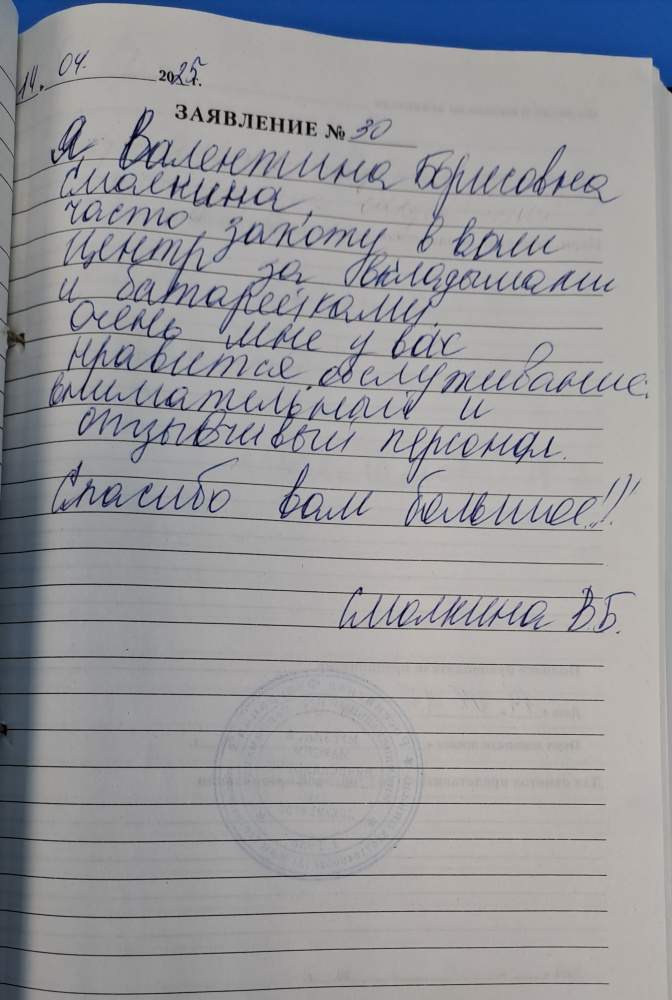 14. 04. 2025г.
ЗАЯВЛЕНИЕ № 30
Я Валентина Борисовна
Смолкина,
часто захожу в ваш
центр за вкладышами
и батарейками.
очень мне у вас
нравится обслуживание.
внимательный и
отзывчивый персонал.
Спасибо вам большое!!!
Смолкина В.Б.